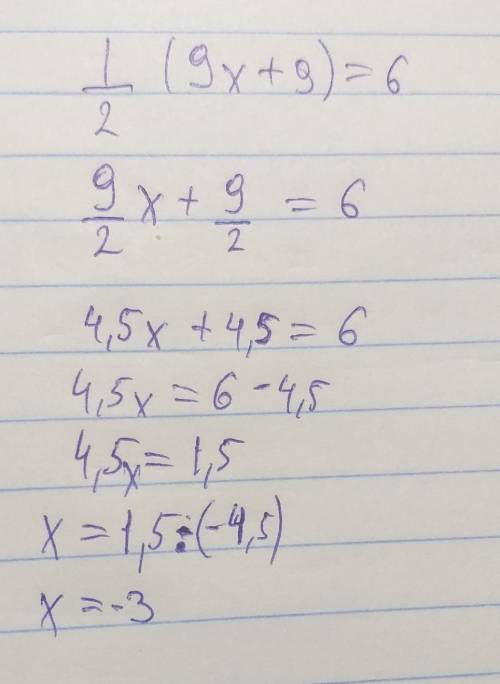 1/2 (9x+9)=6
9/2 x + 9/2 = 6
4,5x + 4,5 = 6
4,5x = 6 - 4,5
4,5x = 1,5
x = 1,5 : (-4,5)
x = -3